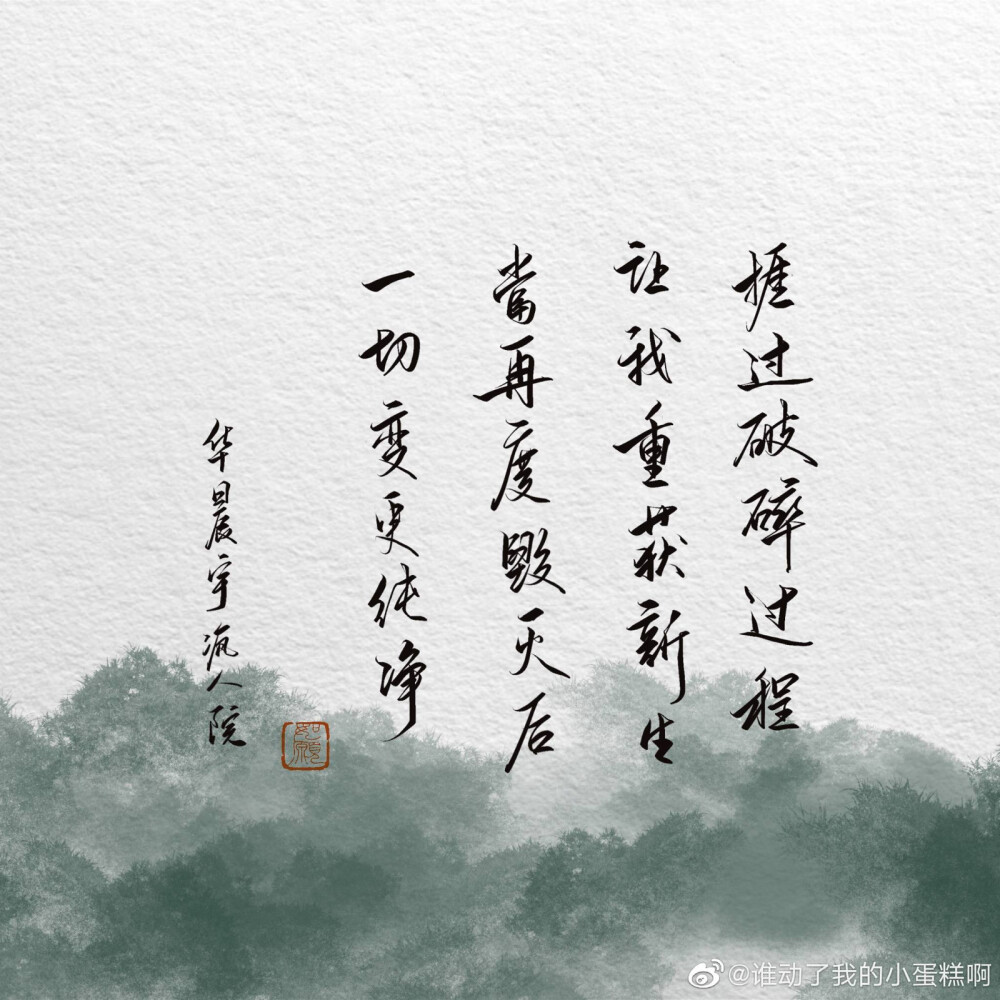 捱过破碎过程
让我重获新生
當再度毁灭后
一切变更纯净
华晨宇 疯人院
如願
@谁动了我的小蛋糕啊